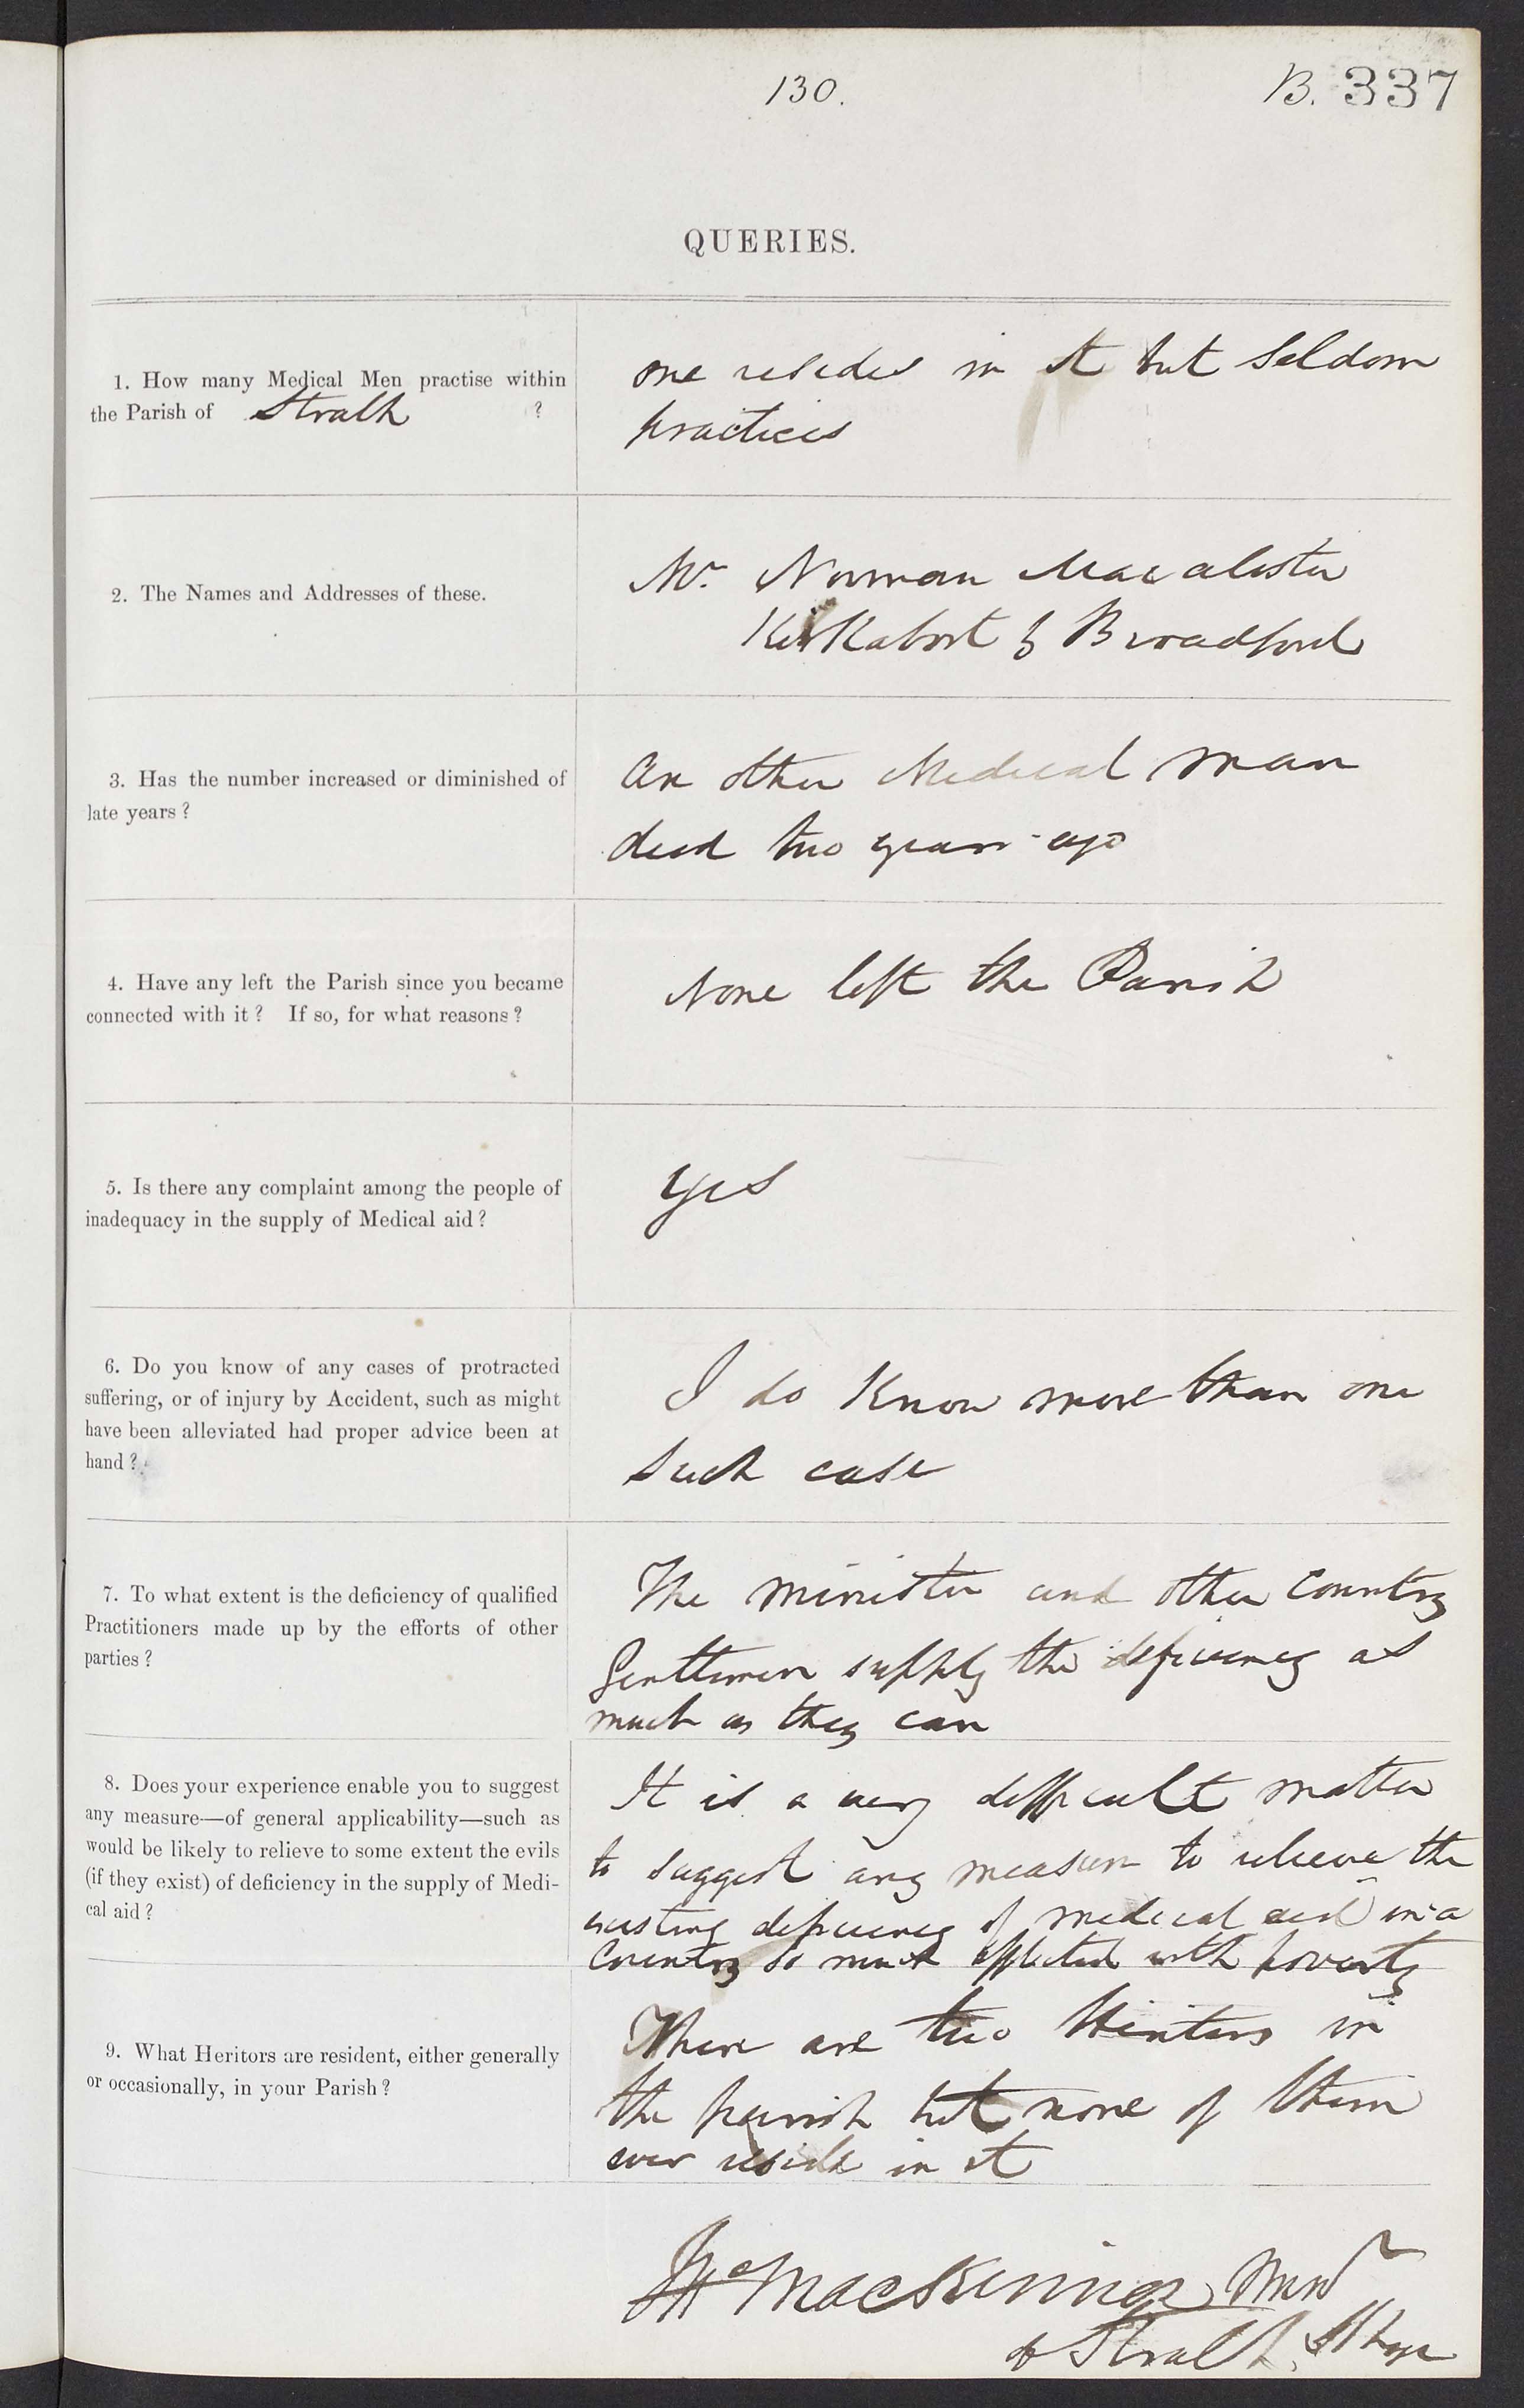 130.
B. 337
QUERIES.
1. How many Medical Men practise within
the Parish of Strath ?
one resides in it but Seldom
practices
2. The Names and Addresses of these.
Mr. Norman Macalister
Kirkabost by Broadford
3. Has the number increased or diminished of
late years ?
An other Medical man
died two years ago
4. Have any left the Parish since you became
connected with it ? If so, for what reasons ?
None left the Parish
5. Is there any complaint among the people of
inadequacy in the supply of Medical aid ?
Yes
6. Do you know of any cases of protracted
suffering, or of injury by Accident, such as might
have been alleviated had proper advice been at
hand ?
I do Know more than one
Such case
7. To what extent is the deficiency of qualified
Practitioners made up by the efforts of other
parties ?
The minister and other Country
Gentlemen supply the deficiency as
much as they can
8. Does your experience enable you to suggest
any measure—of general applicability—such as
would be likely to relieve to some extent the evils
(if they exist) of deficiency in the supply of Medi-
cal aid ?
It is a very difficult matter
to suggest any measure to relieve the
existing deficiency of medical aid in a
Country so much afflicted with poverty
9. What Heritors are resident, either generally
or occasionally, in your Parish ?
There are two Heritors in
the parish but none of them
ever reside in it
MacKinnon Minr
of Strath Skye